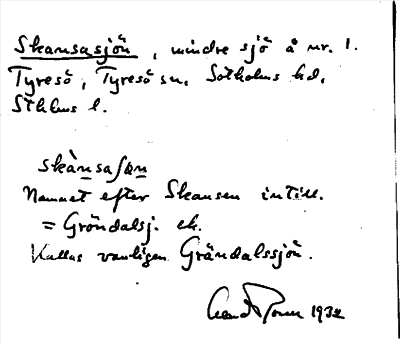 Skansasjön, mindre sjö å nr. 1.
Tyresö, Tyresö sn, Sotholms hd,
Sthlms l.
skànsaʃɷn
Namnet efter Skansen intill.
= Gröndalsj. ek.
Kallas vanligen Gröndalssjön.
1932